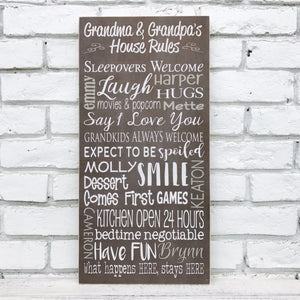 Grandma & Grandpa's
House Rules
Sleepovers Welcome
emmy
Laugh
Harper
HUGS
movies & popcorn
Mette
Say I Love You
GRANDKIDS ALWAYS WELCOME
EXPECT TO BE spoiled
MOLLY
SMILE
Dessert
Comes First
GAMES
KEATON
CAMERON
KITCHEN OPEN 24 HOURS
bedtime negotiable
Have FUN
Brynn
What happens HERE, stays HERE